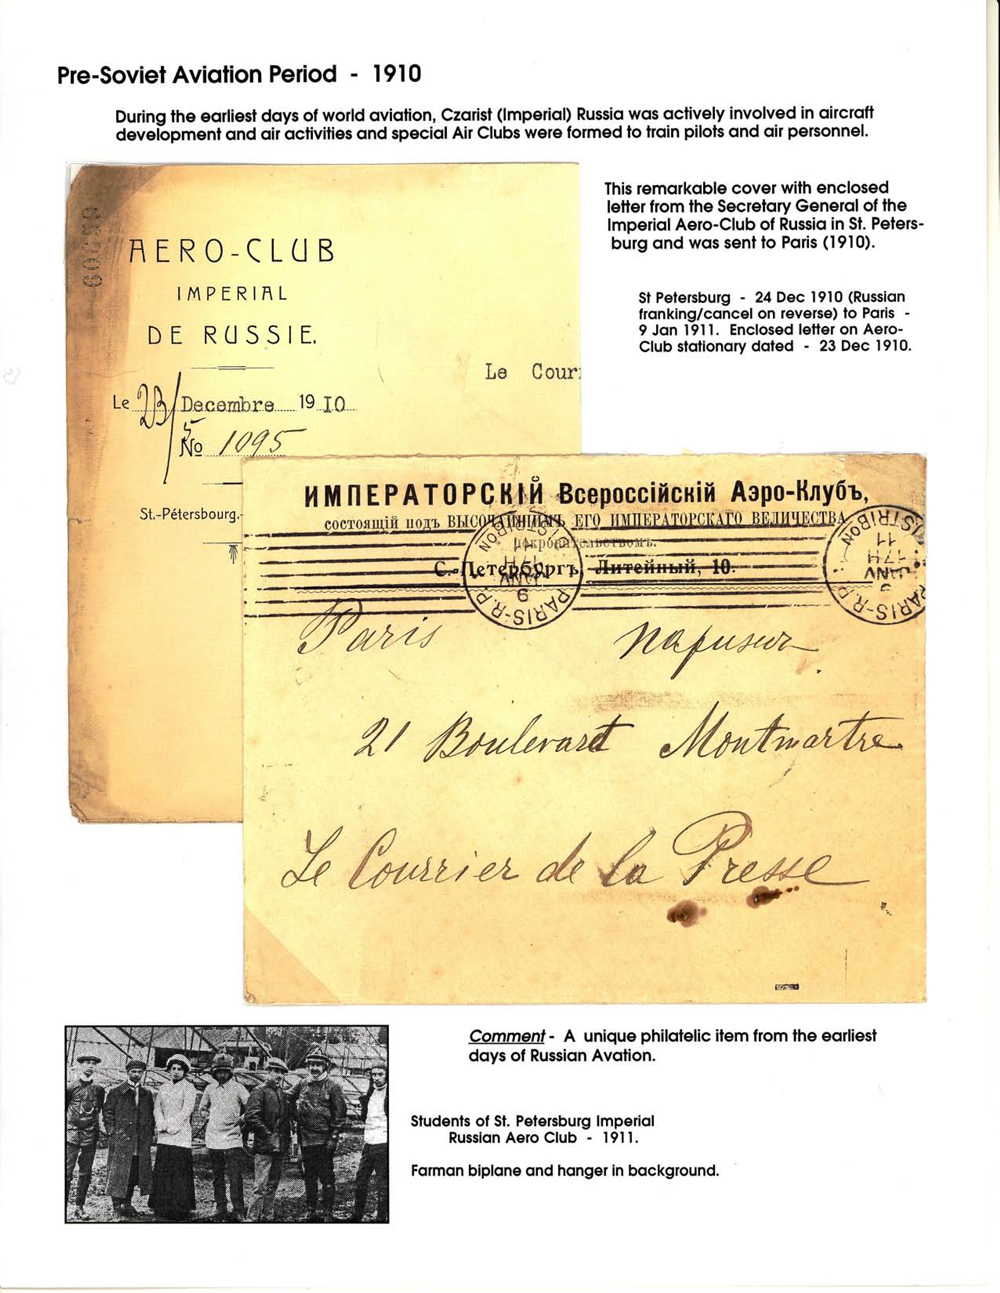 Pre-Soviet Aviation Period - 1910
During the earliest days of world aviation, Czarist (Imperial) Russia was actively involved in aircraft
development and air activities and special Air Clubs were formed to train pilots and air personnel.
This remarkable cover with enclosed
letter from the Secretary General of the
Imperial Aero-Club of Russia in St. Peters-
burg and was sent to Paris (1910).
St Petersburg - 24 Dec 1910 (Russian
franking/cancel on reverse) to Paris -
9 Jan 1911. Enclosed letter on Aero-
Club stationary dated - 23 Dec 1910.
AERO-CLUB
IMPERIAL
DE RUSSIE.
Le Cour
Le 23/5 Decembre 1910
No 1095
St.-Pétersbourg.
ИМПЕРАТОРСКІЙ Всероссійскій Аэро-Клубъ,
состоящій подъ ВЫСОЧАЙШИМЪ ЕГО ИМПЕРАТОРСКАГО ВЕЛИЧЕСТВА
покровительствомъ.
С.-Петербургъ, Литейный, 10.
PARIS-R.P.
9
JANV
17H
11
DISTRIBON
PARIS-R.P.
9
JANV
17H
11
DISTRIBON
Paris
21 Boulevard Montmartre
Le Courrier de la Presse
Comment - A unique philatelic item from the earliest
days of Russian Avation.
Students of St. Petersburg Imperial
Russian Aero Club - 1911.
Farman biplane and hanger in background.